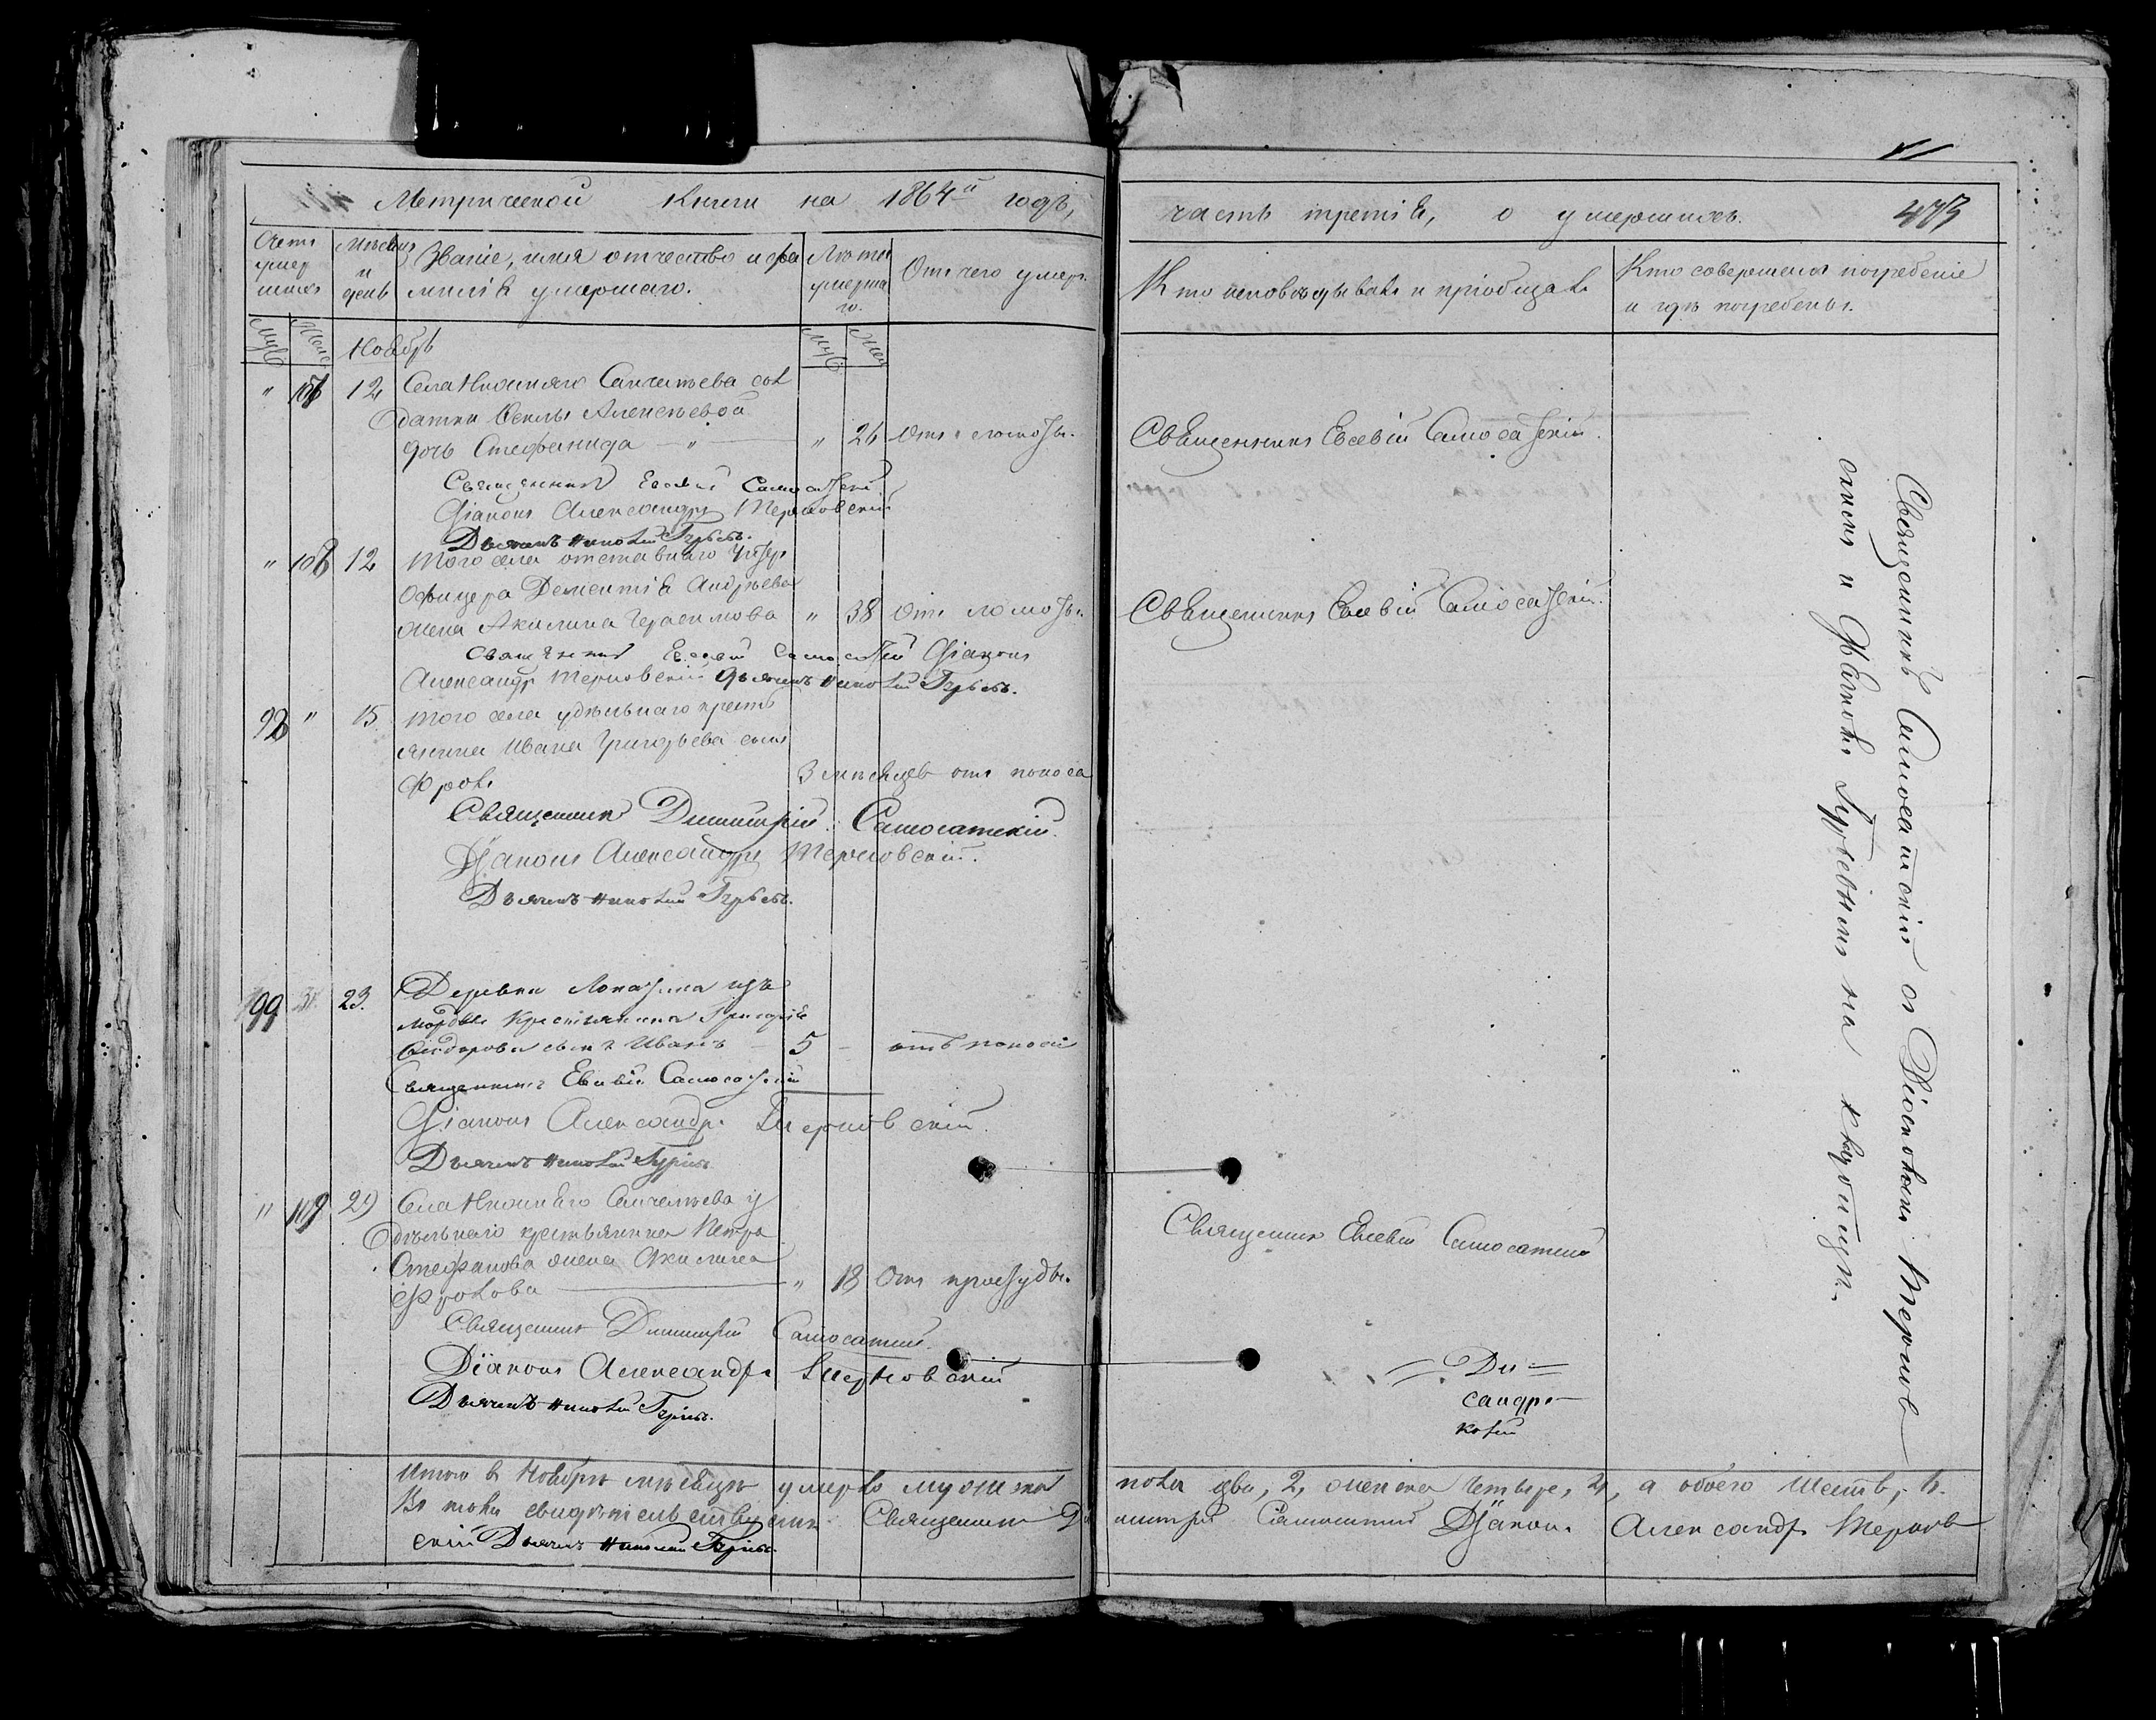 Метрической книги на 1864й годъ,
Счетъ умершихъ
Мѣсяцъ и день
Званіе, имя отчество и фамилія умершаго.
Лѣта умершаго.
Отъ чего умеръ.
Муж Жен
Муж Жен
Ноябрь
" 12 Села Нижняго Санчелѣева сол
датки Феклы Алексѣевой
дочь Стефанида — " — " 26 отъ
Священникъ Евсевій Самосатскій
Діаконъ Александръ Терновскій
Дьячекъ Николай
" 108 12 Того села отставнаго Унтеръ
Офицера Дементія Андреева
жена Акилина Герасимова " 38 отъ
Священникъ Евсевій Самосатскій Діаконъ
Александръ Терновскій Дьячекъ Николай
98 " 15 Того села удѣльнаго крестъ
янина Ивана Григорьева сынъ
Фролъ 3 мѣсяцев отъ поноса
Священникъ Димитрій Самосатскій.
Діаконъ Александръ Терновскій.
Дьячекъ Николай
99 23. Деревни Лопатина изъ
мордвы крестьянина Григорія
Сидорова сынъ Иванъ — 5 — отъ поноса
Священникъ Евсевій Самосатскій
Діаконъ Александръ Терновскій.
Дьячекъ Николай
" 109 29 Села Нижняго Санчелѣева у
дѣльнаго крестьянина Петра
Стефанова жена Акилина
Фролова — " 18 Отъ простуды.
Священникъ Димитрій Самосатскій.
Діаконъ Александръ Терновскій
Дьячекъ Николай
Итого въ Ноябрѣ мѣсяцѣ умерло мужеска
Въ томъ свидѣтельствуемъ Священникъ Ди
скій Дьячекъ Николай
часть третія, о умершихъ. 473
Кто исповѣдывалъ и пріобщалъ
Кто совершалъ погребеніе
и гдѣ погребены.
Священникъ Евсевій Самосатскій.
Священникъ Евсевій Самосатскій.
Священникъ Евсевій Самосатскій
Священникъ Самосатскій съ Діакономъ Тернов
скимъ и Дьячкомъ на кладбищи.
сандр
пола два, 2, женска четыре, 4, а обоего шесть, 6.
митрій Самосатскій Діаконъ Александръ Тернов